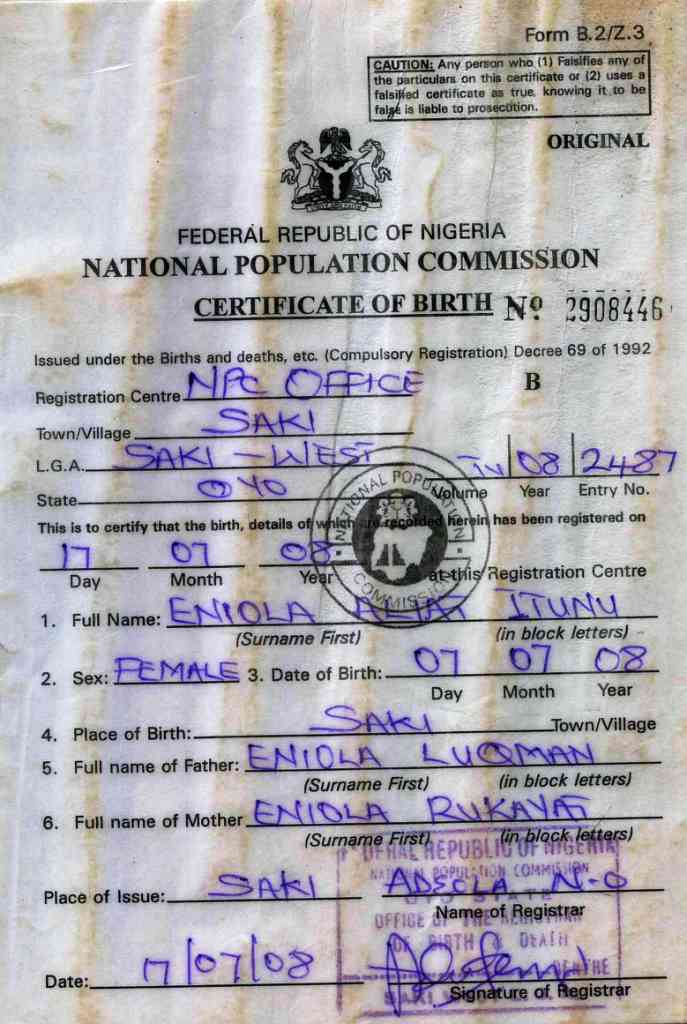 Form B.2/Z.3
CAUTION: Any person who (1) Falsifies any of
the particulars on this certificate or (2) uses a
falsified certificate as true, knowing it to be
false is liable to prosecution.
ORIGINAL
FEDERAL REPUBLIC OF NIGERIA
NATIONAL POPULATION COMMISSION
CERTIFICATE OF BIRTH Nº 2908446
Issued under the Births and deaths, etc. (Compulsory Registration) Decree 69 of 1992
Registration Centre NPC OFFICE B
Town/Village SAKI
L.G.A. SAKI - WEST 08 2487
State OYO Volume Year Entry No.
NATIONAL POPULATION COMMISSION
This is to certify that the birth, details of which are recorded herein has been registered on
17 07 08
Day Month Year at this Registration Centre
1. Full Name: ENIOLA ALIAT ITUNU
(Surname First) (in block letters)
2. Sex: FEMALE 3. Date of Birth: 07 07 08
Day Month Year
4. Place of Birth: SAKI Town/Village
5. Full name of Father: ENIOLA LUQMAN
(Surname First) (in block letters)
6. Full name of Mother ENIOLA RUKAYAT
(Surname First) (in block letters)
DERAL REPUBLIC OF NIGERIA
NATIONAL POPULATION COMMISSION
OYO STATE
Place of Issue: SAKI ADEOLA N.O
Name of Registrar
OFFICE OF THE REGISTRAR
OF BIRTH & DEATH
Date: 17/07/08
Signature of Registrar